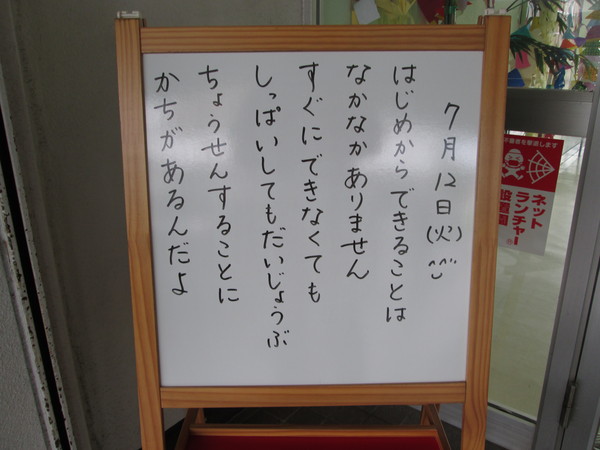 7月12日(火)
はじめからできることは
なかなかありません
すぐにできなくても
しっぱいしてもだいじょうぶ
ちょうせんすることに
かちがあるんだよ
ネット
ランチャー
設置園